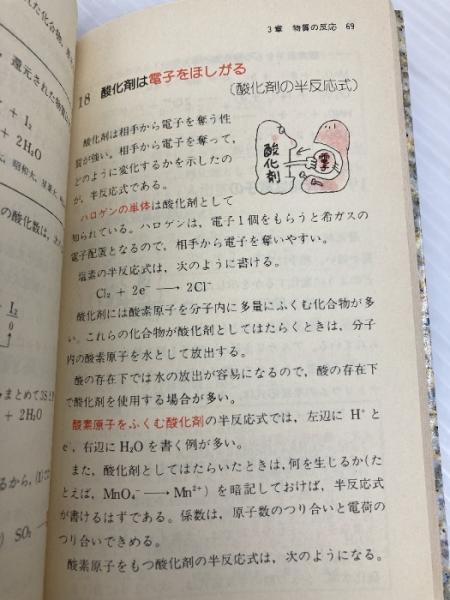 れた化合物,
還元された物質
+ I₂
+ 2H₂O
の酸化数は,
I₂
0
まとめて
+ 2H₂O
るから,
SO₂
3章 物質の反応 69
18 酸化剤は電子をほしがる
(酸化剤の半反応式)
酸化剤は相手から電子を奪う性
質が強い。相手から電子を奪って,
どのように変化するかを示したの
が, 半反応式である。
酸化剤
電子
ハロゲンの単体は酸化剤として
知られている。ハロゲンは, 電子1個をもらうと希ガスの
電子配置となるので, 相手から電子を奪いやすい。
塩素の半反応式は, 次のように書ける。
Cl₂ + 2e⁻ ⟶ 2Cl⁻
酸化剤には酸素原子を分子内に多量にふくむ化合物が多
い。これらの化合物が酸化剤としてはたらくときは, 分子
内の酸素原子を水として放出する。
酸の存在下では水の放出が容易になるので, 酸の存在下
で酸化剤を使用する場合が多い。
酸素原子をふくむ酸化剤の半反応式では, 左辺に H⁺ と
e⁻, 右辺に H₂O を書く例が多い。
また, 酸化剤としてはたらいたときは, 何を生じるか(た
とえば, MnO₄⁻ ⟶ Mn²⁺) を暗記しておけば, 半反応式
が書けるはずである。係数は, 原子数のつり合いと電荷の
つり合いできめる。
酸素原子をもつ酸化剤の半反応式は, 次のようになる。